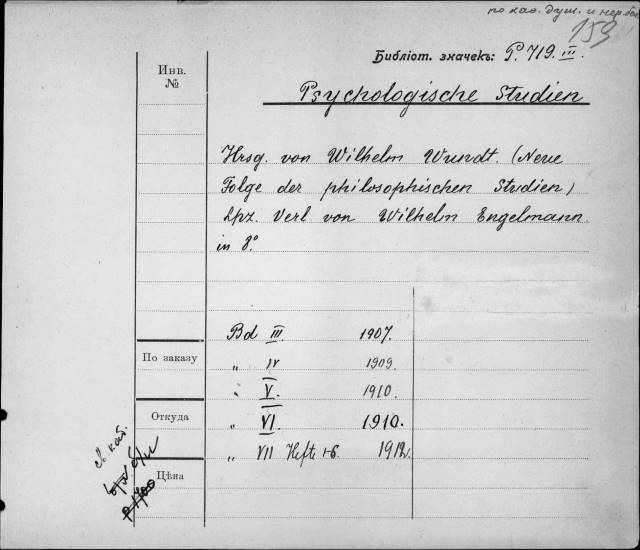 по каѳ. душ. и нер. бол.
153
Библіот. значекъ: P. 719. III.
Инв. №
Psychologische Studien
Hrsg. von Wilhelm Wundt. (Neue
Folge der philosophischen Studien)
Lpz. Verl. von Wilhelm Engelmann.
in 8°
Bd III. 1907.
По заказу
„ IV 1909.
„ V. 1910.
Откуда
„ VI. 1910.
„ VII Hefte 1-6. 1912.
Цѣна